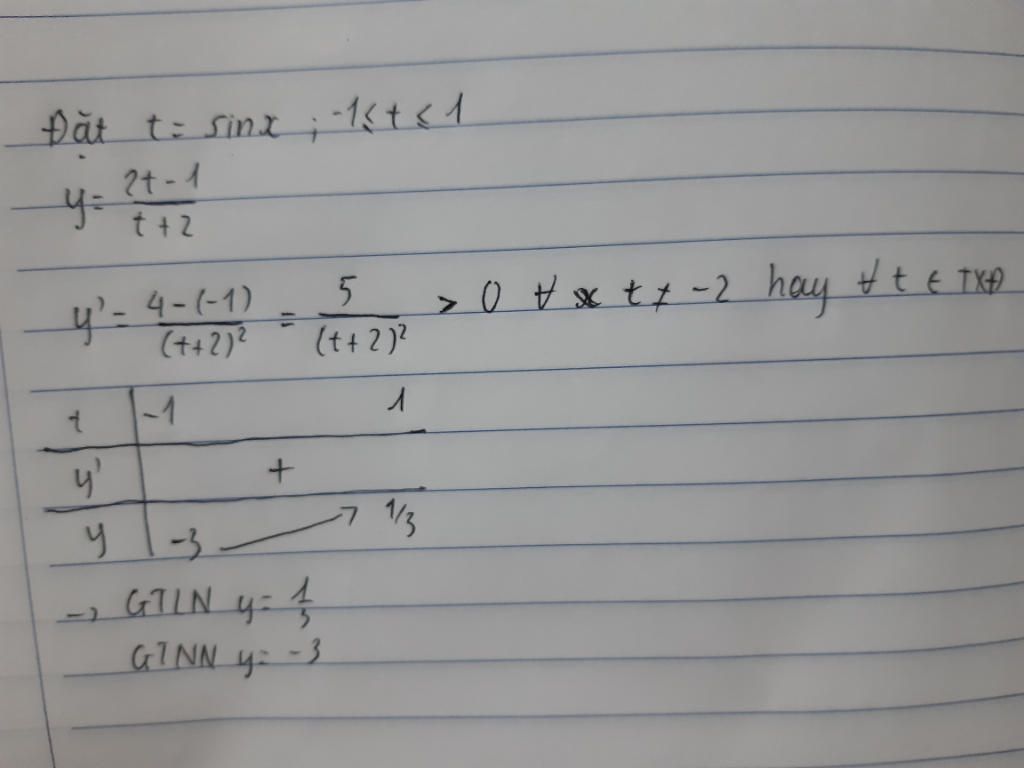 Đặt t = sinx ; -1 ≤ t ≤ 1
y = \frac{2t-1}{t+2}
y' = \frac{4-(-1)}{(t+2)²} = \frac{5}{(t+2)²} > 0 ∀ t ≠ -2 hay ∀ t ∈ TXĐ
t | -1 1
y' | +
y | -3 ↗ 1/3
→ GTLN y = \frac{1}{3}
GTNN y = -3